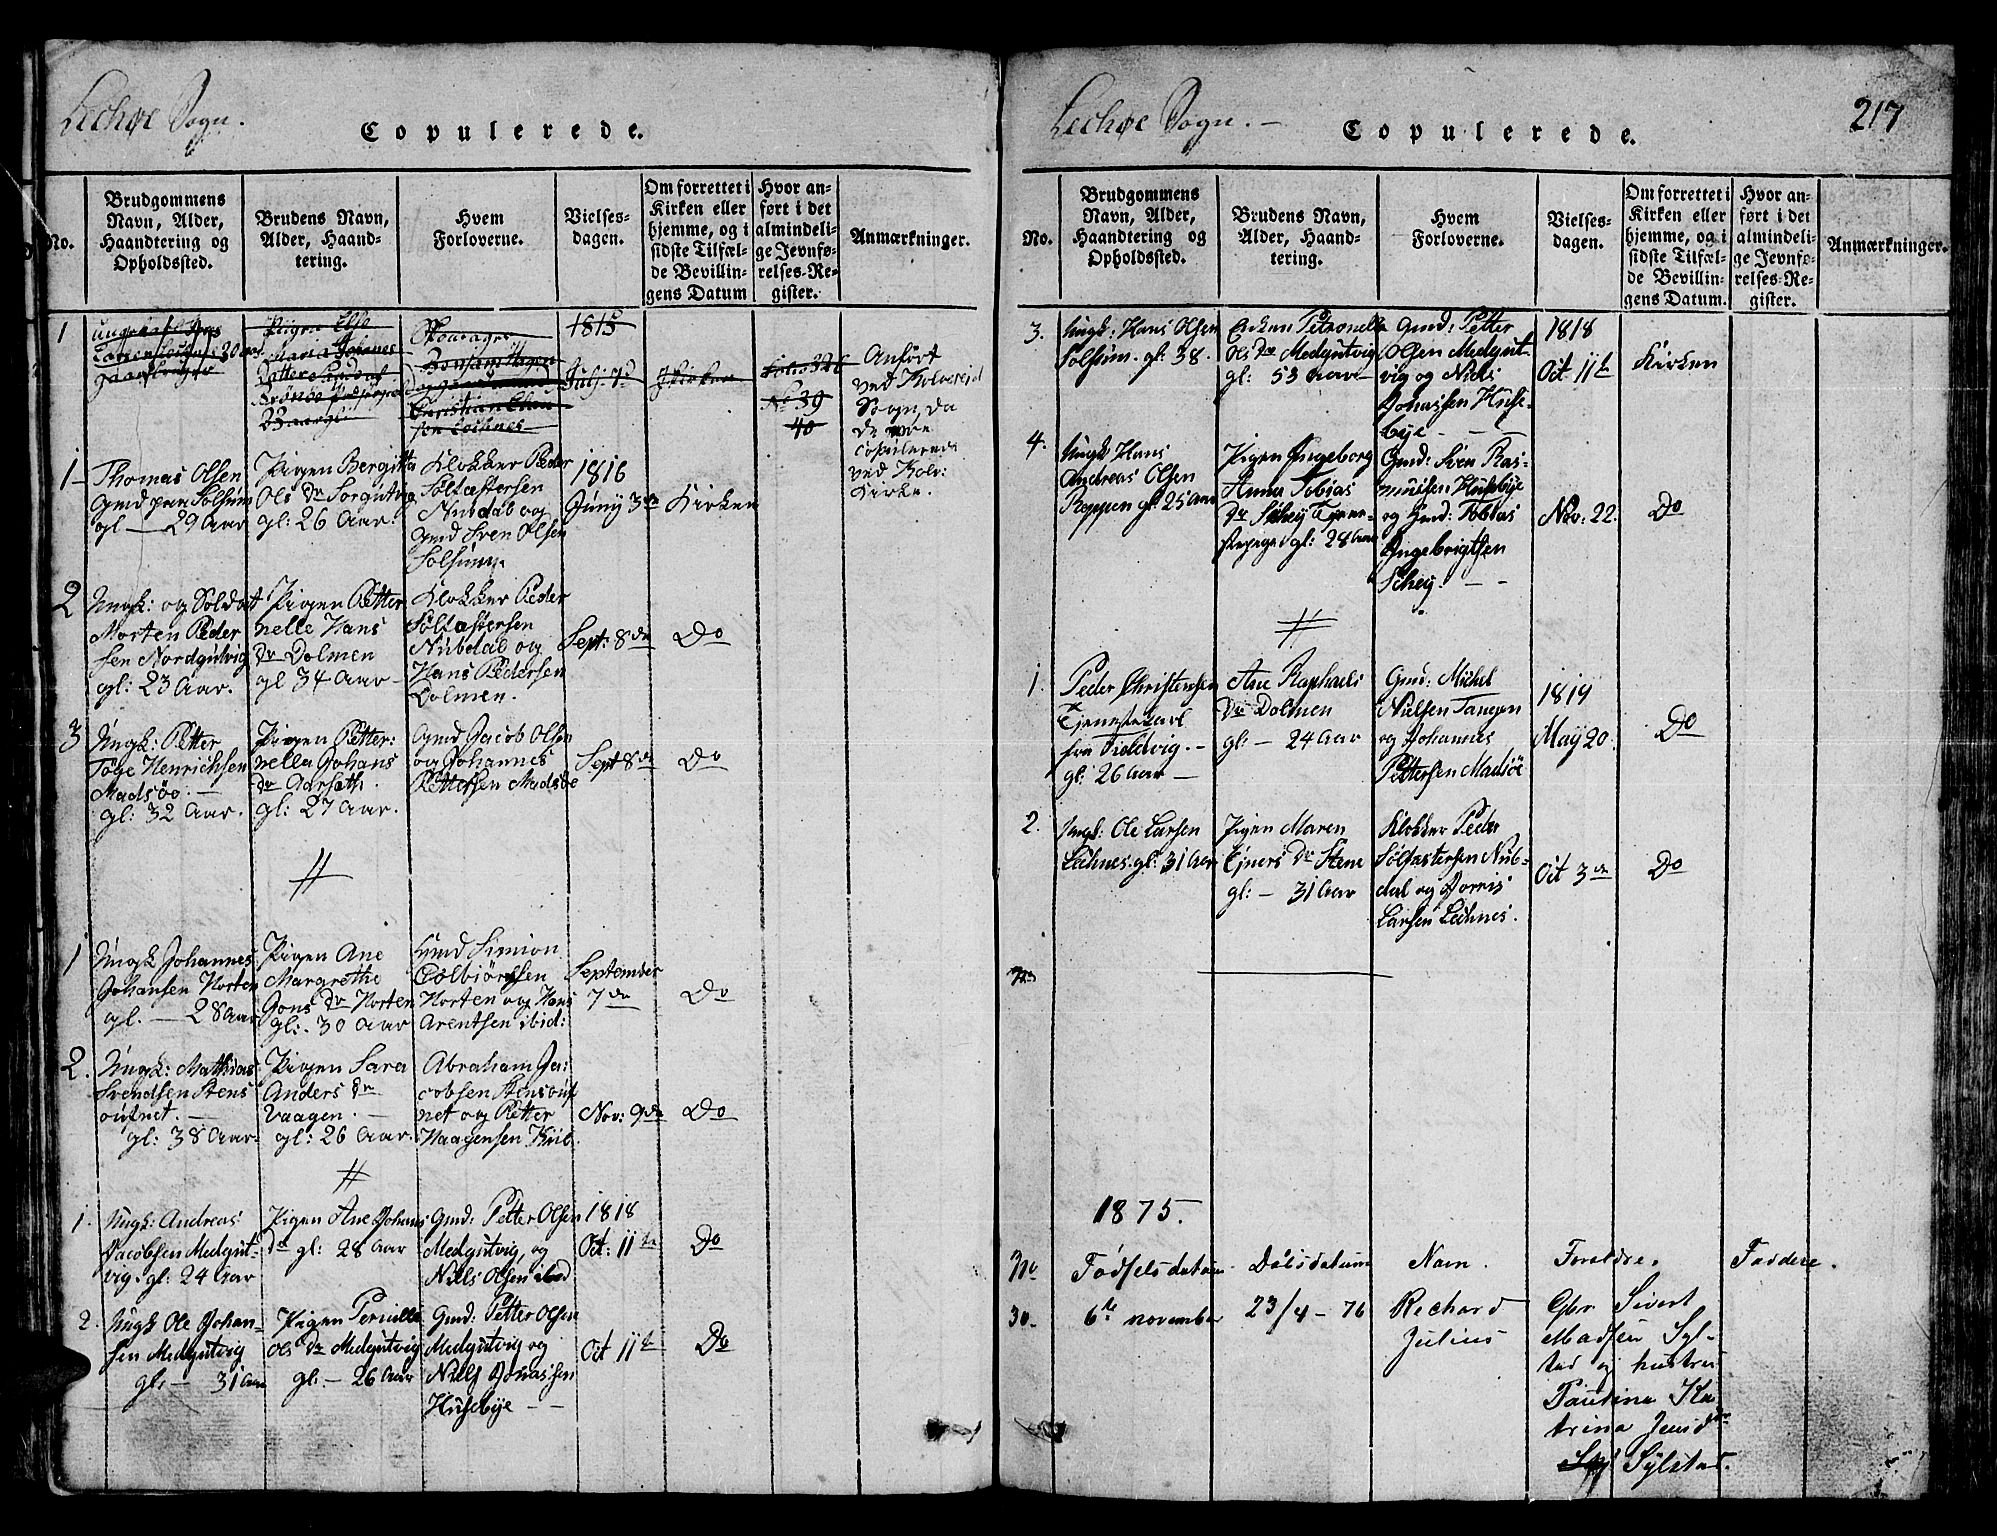 Lechøe Sogn.
Copulerede.
No.
Brudgommens
Navn, Alder,
Haandtering og
Opholdssted.
Brudens Navn,
Alder, Haand-
tering.
Hvem
Forloverne.
Vielses-
dagen.
Om forrettet i
Kirken eller
hjemme, og i
sidste Tilfæl-
de Bevillin-
gens Datum
Hvor an-
ført i det
almindeli-
ge Jevnfø-
relses-Re-
gister.
Anmærkninger.
1
Pigen Else
Maria Johanes
1815
Julj 9d
Kirken
Folio 326
No 39
40
Anført
ved Kolvereid
Sogn, da
de ere
copulerede
ved Kolv:
Kirke.
1
Thomas Olsen
Gmd paa Solsum
gl — 29 Aar
Pigen Bergitta
Ols Dr Sorgutvig
gl: 26 Aar.
Klokker Peder
Søltæstersen
Nubdal og
Gmd Sven Olsen
Solsum
1816
Juny 3de
Kirken
2
Ungk: og Soldat
Morten Peder
sen Nordgutvig
gl: 23 Aar.
Pigen Petter
nelle Hans
Dr Dolmen
gl 34 Aar
Klokker Peder
Søltæstersen
Nubdal og
Hans Pedersen
Dolmen.
Sept: 8de
Do
3
Ungk: Petter
Tøge Henrichsen
Madsøe. —
gl: 32 Aar.
Pigen Petter:
nella Johans
Dr Aarseth
gl: 27 Aar.
Gmd Jacob Olsen
og Johannes
Pettersen Madsøe
Sept 8de
Do
#
1
Ungk Johannes
Johansen Horten
gl. — 28 Aar
Pigen Ane
Margrethe
Jons Dr Horten
gl: 30 Aar
Gmd Simion
Colbjørnsen
Horten og Hans
Arentsen ibid:
September
7de
Do
2.
Ungk: Mathias
Svendsen Stens
oufnet. —
gl: 38 Aar
Pigen Sara
Anders Dr
Vaagen. —
gl: 26 Aar.
Abraham Ja-
cobsen Stensouf
net og Petter
Haagensen Kvib.
Nov: 9de
Do
#
1.
Ungk: Andreas
Jacobsen Medgut-
vig. gl: 24 Aar
Pigen Ane Johans
Dr gl: 28 Aar
Gmd: Petter Olsen
Medgutvig, og
Niels Olsen ibid
1818
Oct: 11te
Do
2.
Ungk Ole Johan-
sen Medgutvig
gl: — 31 Aar
Pigen Pernille
Ols Dr Medgutvig
gl: — 26 Aar
Gmd: Petter Olsen
Medgutvig og
Niels Jonassen
Husebye — —
Oct 11te
Do
Lechøe Sogn. —
Copulerede.
217
No.
Brudgommens
Navn, Alder,
Haandtering og
Opholdssted.
Brudens Navn,
Alder, Haand-
tering.
Hvem
Forloverne.
Vielses-
dagen.
Om forrettet i
Kirken eller
hjemme, og i
sidste Tilfæl-
de Bevillin-
gens Datum.
Hvor an-
ført i det
almindeli-
ge Jevnfø-
relses-Re-
gister.
Anmærkninger.
3.
Ungk: Hans Olsen
Solsum. gl: 38.
Enken Petronelle
Ols Dr Medgutvig
gl: 53 Aar
Gmd: Petter
Olsen Medgut-
vig og Niels
Jonassen Huse-
bye — —
1818
Oct 11te
Kirken
4.
Ungk Hans
Andreas Olsen
Roppen gl: 25 Aar
Pigen Ingeborg
Anna Tobias
Dr Schey Tjene-
stepige gl: 28 Aar
Gmd: Sven Ras-
musen Husebye
og Gmd: Tobias
Ingebrigtsen
Schey. — —
Nov: 22.
Do
#
1.
Peder Christensen
Tjenestekarl
fra Fieldvig. —
gl: 26 Aar —
Ane Raphaels
Dr Dolmen
gl: — 24 Aar
Gmd: Michel
Nielsen Tangen
og Johannes
Pettersen Madsøe
1819
May 20.
Do
2.
Ungk: Ole Larsen
Lechnes. gl: 31 Aar
Pigen Maren
Ejners Dr Stene
gl: — 31 Aar
Klokker Peder
Søltæstersen Nub-
dal og Dorris
Larsen Lechnes.
Oct 3de
Do
No
1875.
No
Fødselsdatum.
Dåbsdatum
Navn.
Foreldre.
Faddere.
30.
6te november
23/4 - 76
Rechard
Julius
Gbr Sivert
Madsen Syl-
stad og hustru
Paulina Ka
trina Jensdtr
Sylstad.